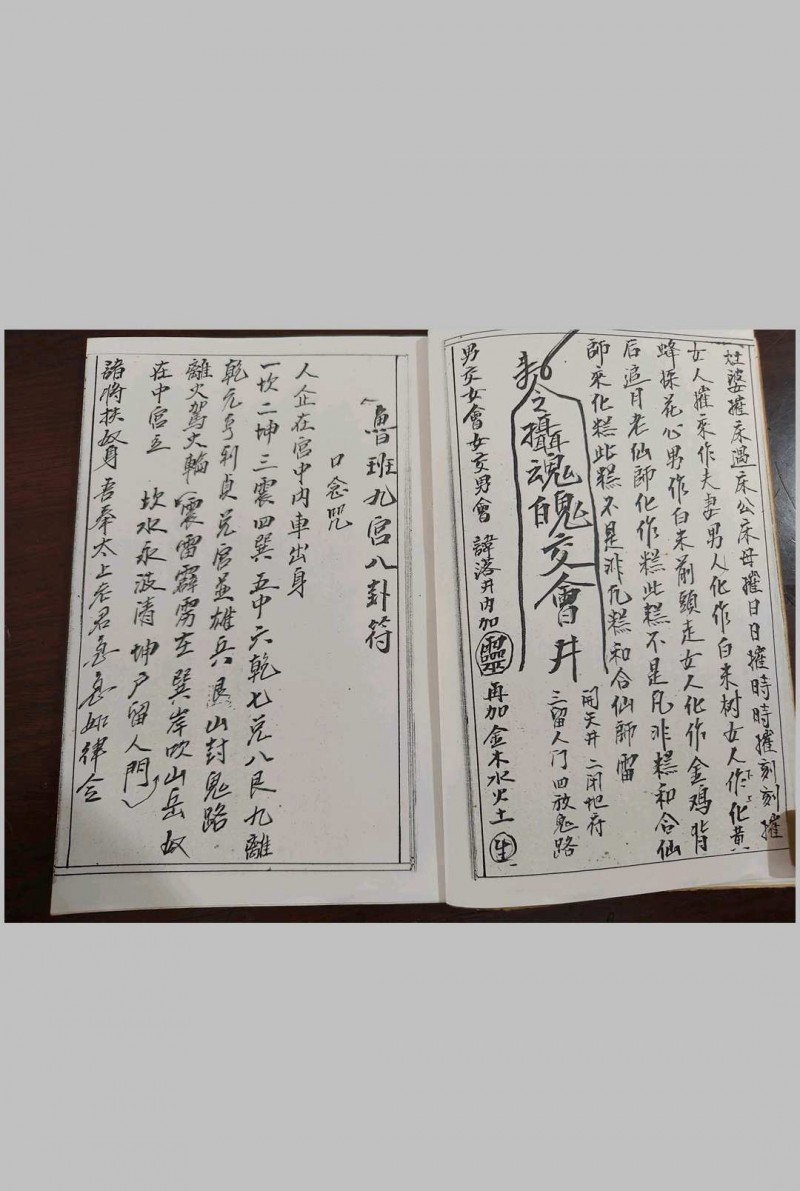 灶婆摧床過床公床母摧日日摧時時摧刻刻摧
女人摧來作夫妻男人化作白末树女人作化黄
蜂採花心男作白末前頭走女人化作金鸡背
后追月老仙師化作糕此糕不是凡非糕和合仙
師來化糕此糕不是非凡糕和合仙師雷
令攝魂魄交會井
開天井二閉地府
三留人门四放鬼路
男交女會女交男會 諱落井内加靈 再加金木水火土生
魯班九宫八卦符
口念咒
人企在宫中内車出身
一坎二坤三震四巽五中六乾七兑八艮九離
乾元亨利貞兑宫英雄兵艮山封鬼路
離火駕火輪震雷霹雳在巽岸吹山岳奴
在中宫立 坎水永波清坤户留人門
諸將扶奴身吾奉太上老君急急如律令